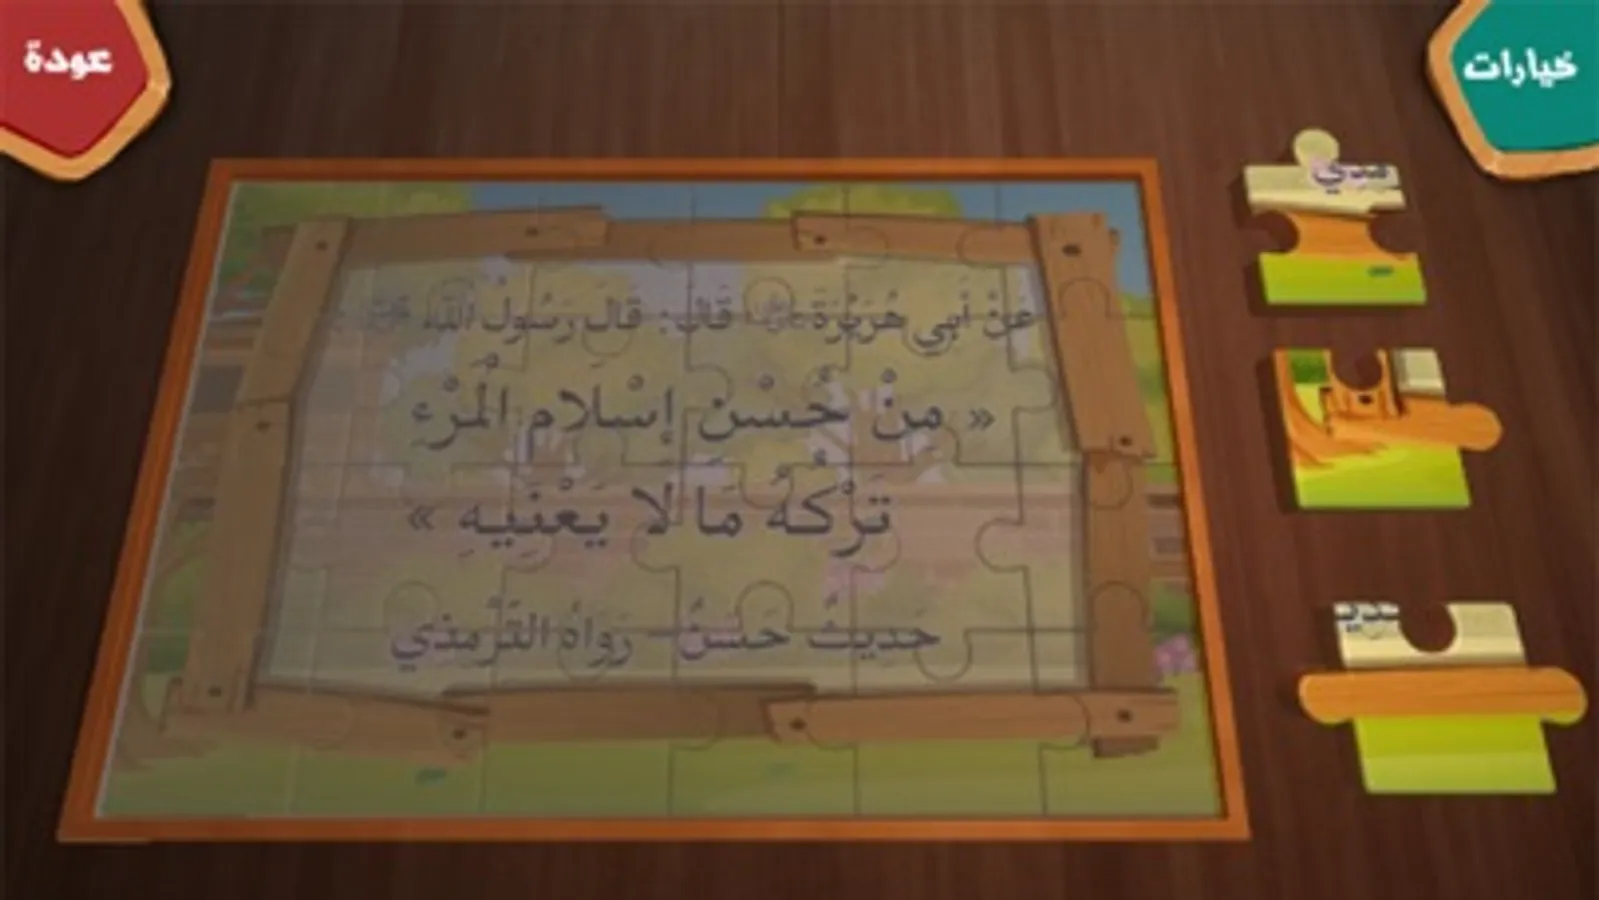 عودة
خيارات
عَنْ أَبِي هُرَيْرَةَ قَالَ: قَالَ رَسُولُ اللّٰهِ ﷺ
« مِنْ حُسْنِ إِسْلَامِ الْمَرْءِ
تَرْكُهُ مَا لَا يَعْنِيهِ »
حَدِيثٌ حَسَنٌ - رَوَاهُ التِّرْمِذِي
مذي